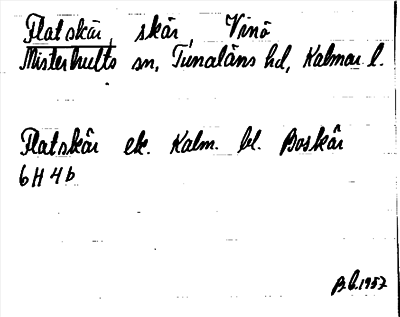 Flatskär, skär, Vinö
Misterhults sn, Tunaläns hd, Kalmar l.
Flatskär ek. Kalm. bl. Boskär
6H4b
B.b.1957